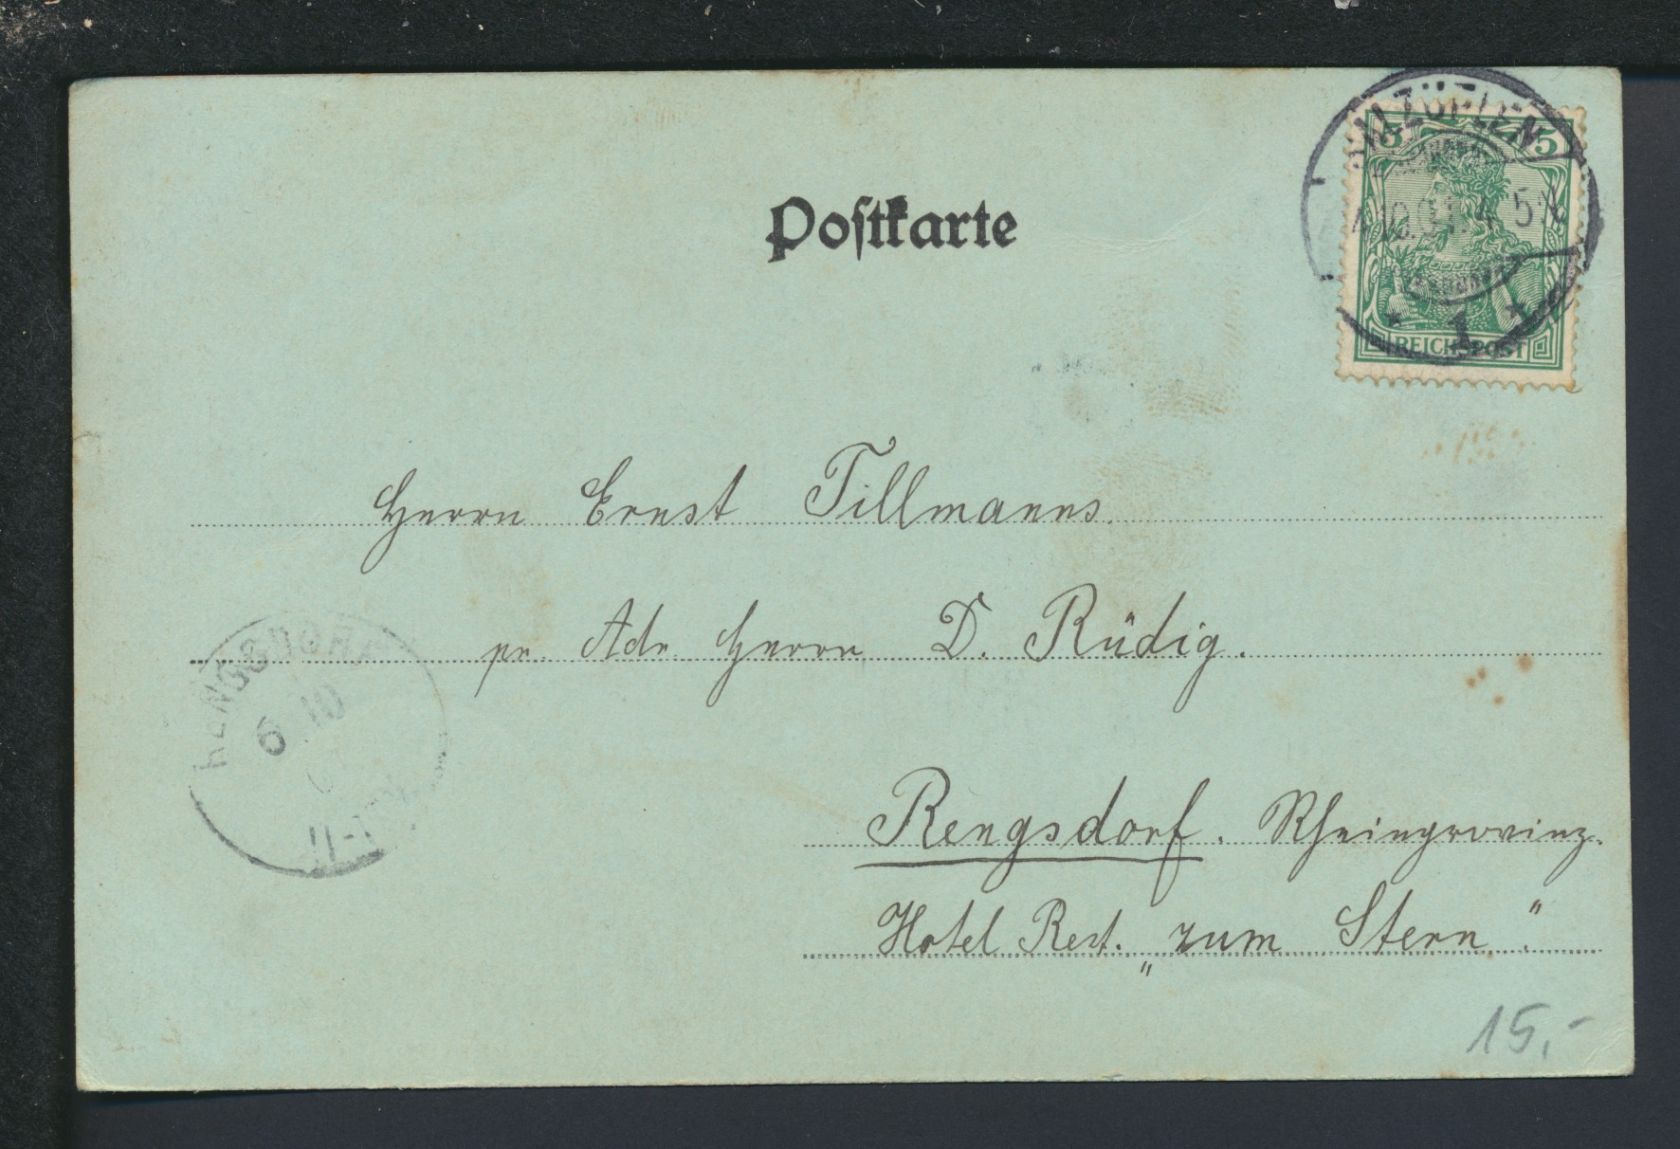 Postkarte
5 5
REICHSPOST
1
Herrn Ernst Tillmanns.
pr. Adr. Herrn D. Rüdig.
RENGSDORF
6 10
Rengsdorf. Rheinprovinz.
Hotel Rest. „zum Stern“
15,-